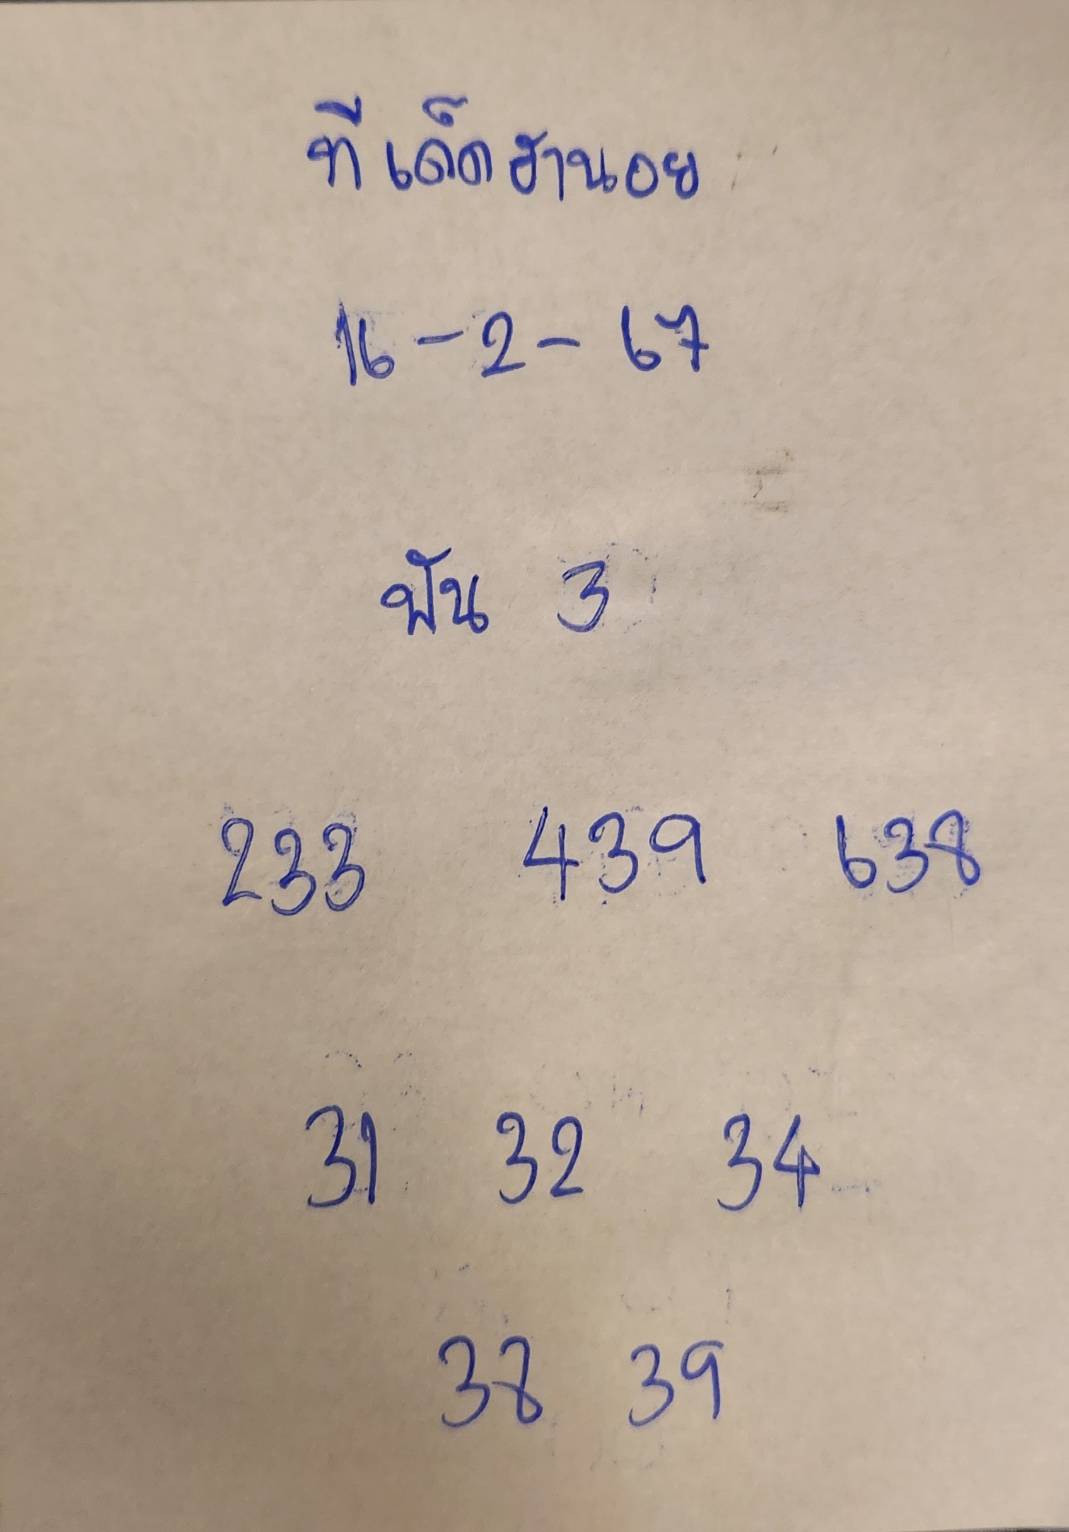 ทีเด็ดฮานอย
16-2-67
ฟัน 3
233 439 638
31 32 34
38 39